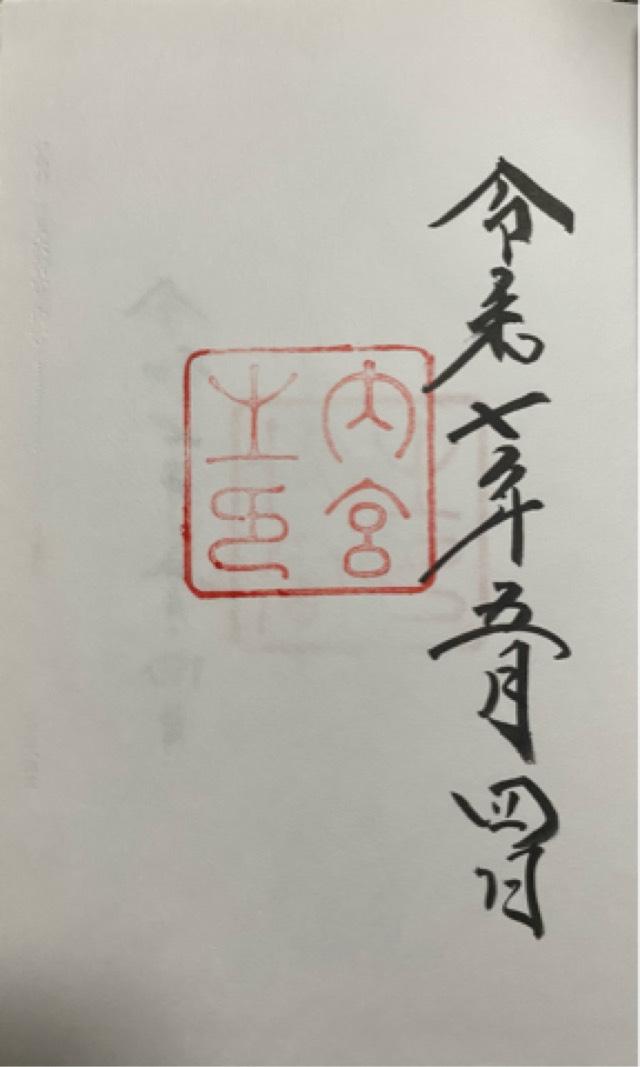 令和七年五月四日
内宮
之印